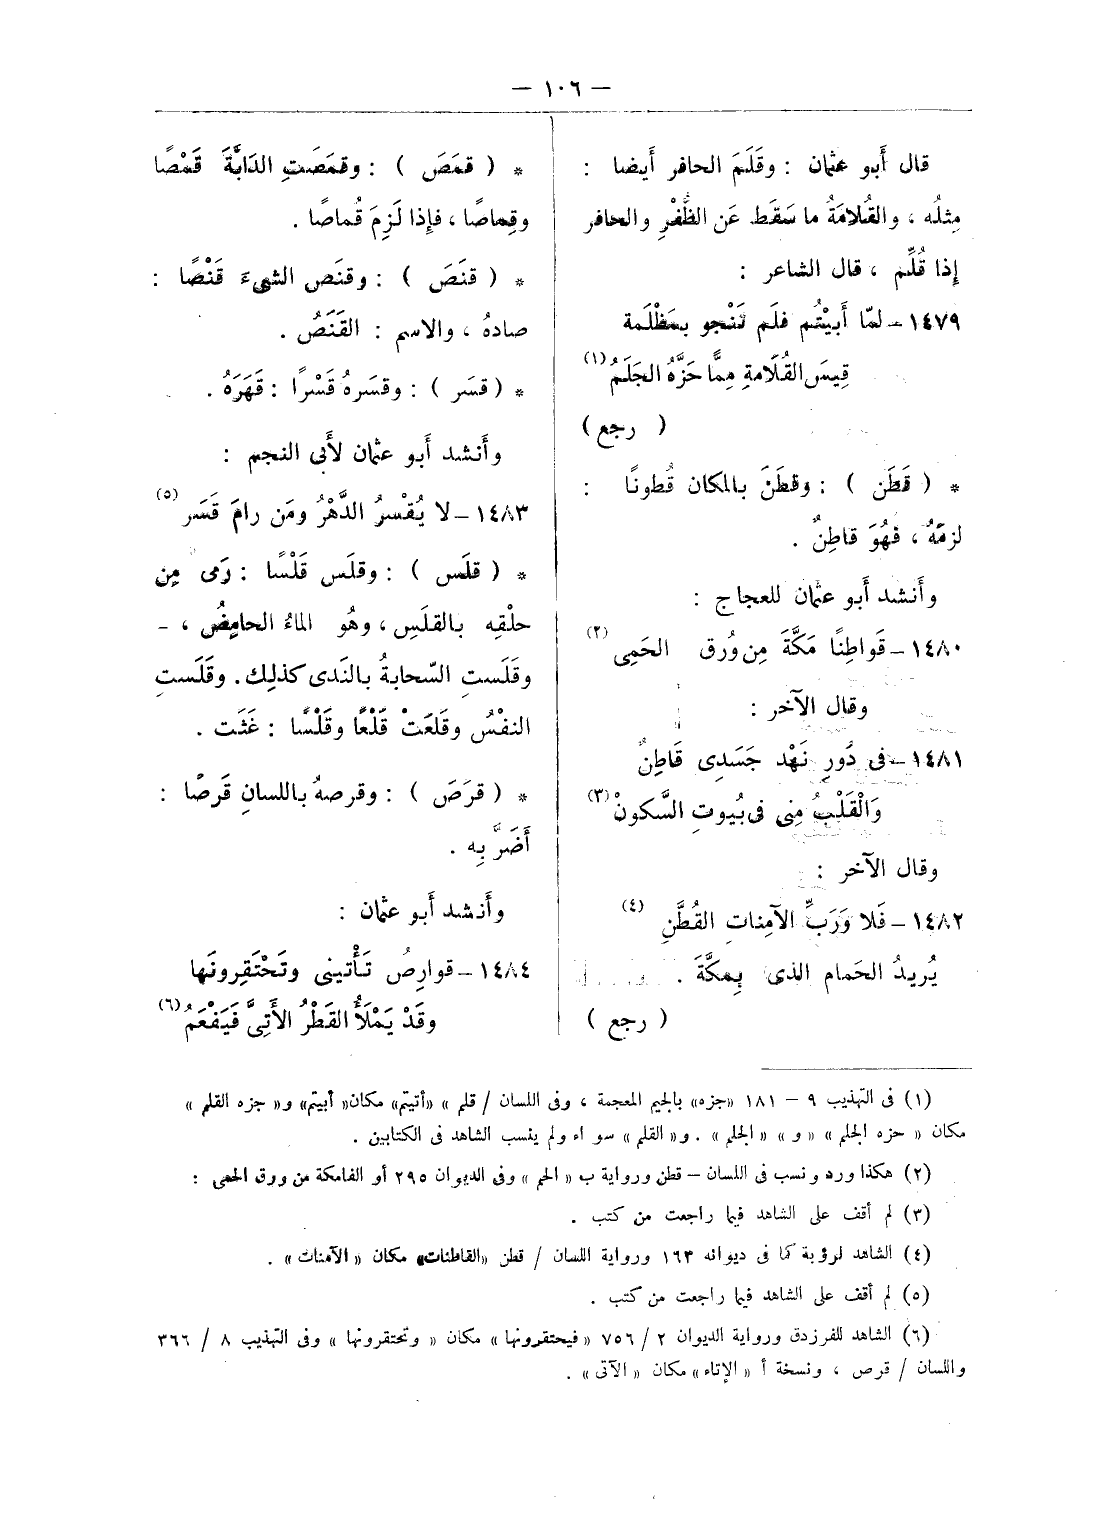 — ١٠٦ —
قال أَبو عثمان : وقَلَمَ الحافر أَيضا :
مِثلُه ، والقُلامَةُ ما سَقَط عَن الظُّفْرِ والحافر
إِذا قُلِّم ، قال الشاعر :
١٤٧٩ – لمّا أَبيْتُم فلَم تَنْجو بمَظْلَمة
قِيسَ القُلَامةِ مِمَّا حَزَّهُ الجَلَمُ (١)
( رجع )
* ( قَطَن ) : وقطَنَ بالمكان قُطونًا :
لزمَهُ ، فهُوَ قاطِنٌ .
وأَنشد أَبو عثمان للعجاج :
١٤٨٠ – قَواطِنًا مَكَّةَ مِن وُرق الحَمِى (٢)
وقال الآخر :
١٤٨١ – فى دُورِ نَهْد جَسَدِى قَاطِنٌ
وَالْقَلْبُ مِنى فى بُيوتِ السَّكونْ (٣)
وقال الآخر :
١٤٨٢ – فَلا وَرَبِّ الآمِنات القُطَّنِ (٤)
يُريدُ الحَمام الذى بِمكَّةَ .
( رجع )
* ( قمَصَ ) : وقمَصَتِ الدَابَّةَ قَمْصًا
وقِماصًا ، فإِذا لَزِمَ قُماصًا .
* ( قنَصَ ) : وقنَص الشىءَ قَنْصًا :
صادهُ ، والاسم : القَنَصُ .
* ( قسَر ) : وقسَرهُ قَسْرًا : قَهَرَهُ .
وأَنشد أَبو عثمان لأَبى النجم :
١٤٨٣ – لا يُقْسرُ الدَّهْرُ ومَن رامَ قَسَر (٥)
* ( قلَس ) : وقلَس قَلْسًا : رَمى مِن
حلْقِه بالقلَسِ ، وهُو الماءُ الحامِضُ ، –
وقَلَستِ السّحابةُ بالنَدى كذلِك . وقَلَستِ
النفْسُ وقَلعَتْ قَلْعًا وقَلْسًا : غَثَت .
* ( قرَصَ ) : وقرصهُ باللسانِ قَرصًا :
أَضَرَّ بِه .
وأَنشد أَبو عثمان :
١٤٨٤ – قوارِصُ تَأْتينى وتَحْتَقِرونَها
وقَدْ يَمْلَأُ القَطْرُ الأَتِىَّ فَيَفْعَمُ (٦)
(١) فى التهذيب ٩ – ١٨١ «جزه» بالجيم المعجمة ، وفى اللسان / قلم » «أتيتم» مكان «أبيتم» و« جزه القلم »
مكان « حزه الجلم » « و » «الجلم» . و« القلم » سواء ولم ينسب الشاهد فى الكتابين .
(٢) هكذا ورد ونسب فى اللسان – قطن ورواية ب « الحم » وفى الديوان ٢٩٥ أو الفامكة من ورق الحمى :
(٣) لم أقف على الشاهد فيما راجعت من كتب .
(٤) الشاهد لرؤبة كما فى ديوانه ١٦٣ ورواية اللسان / قطن «القاطنات» مكان «الآمنات» .
(٥) لم أقف على الشاهد فيما راجعت من كتب .
(٦) الشاهد للفرزدق ورواية الديوان ٢ / ٧٥٦ «فيحتقرونها» مكان « وتحتقرونها » وفى التهذيب ٨ / ٣٦٦
واللسان / قرص ، ونسخة أ « الإتاء» مكان « الآتى » .